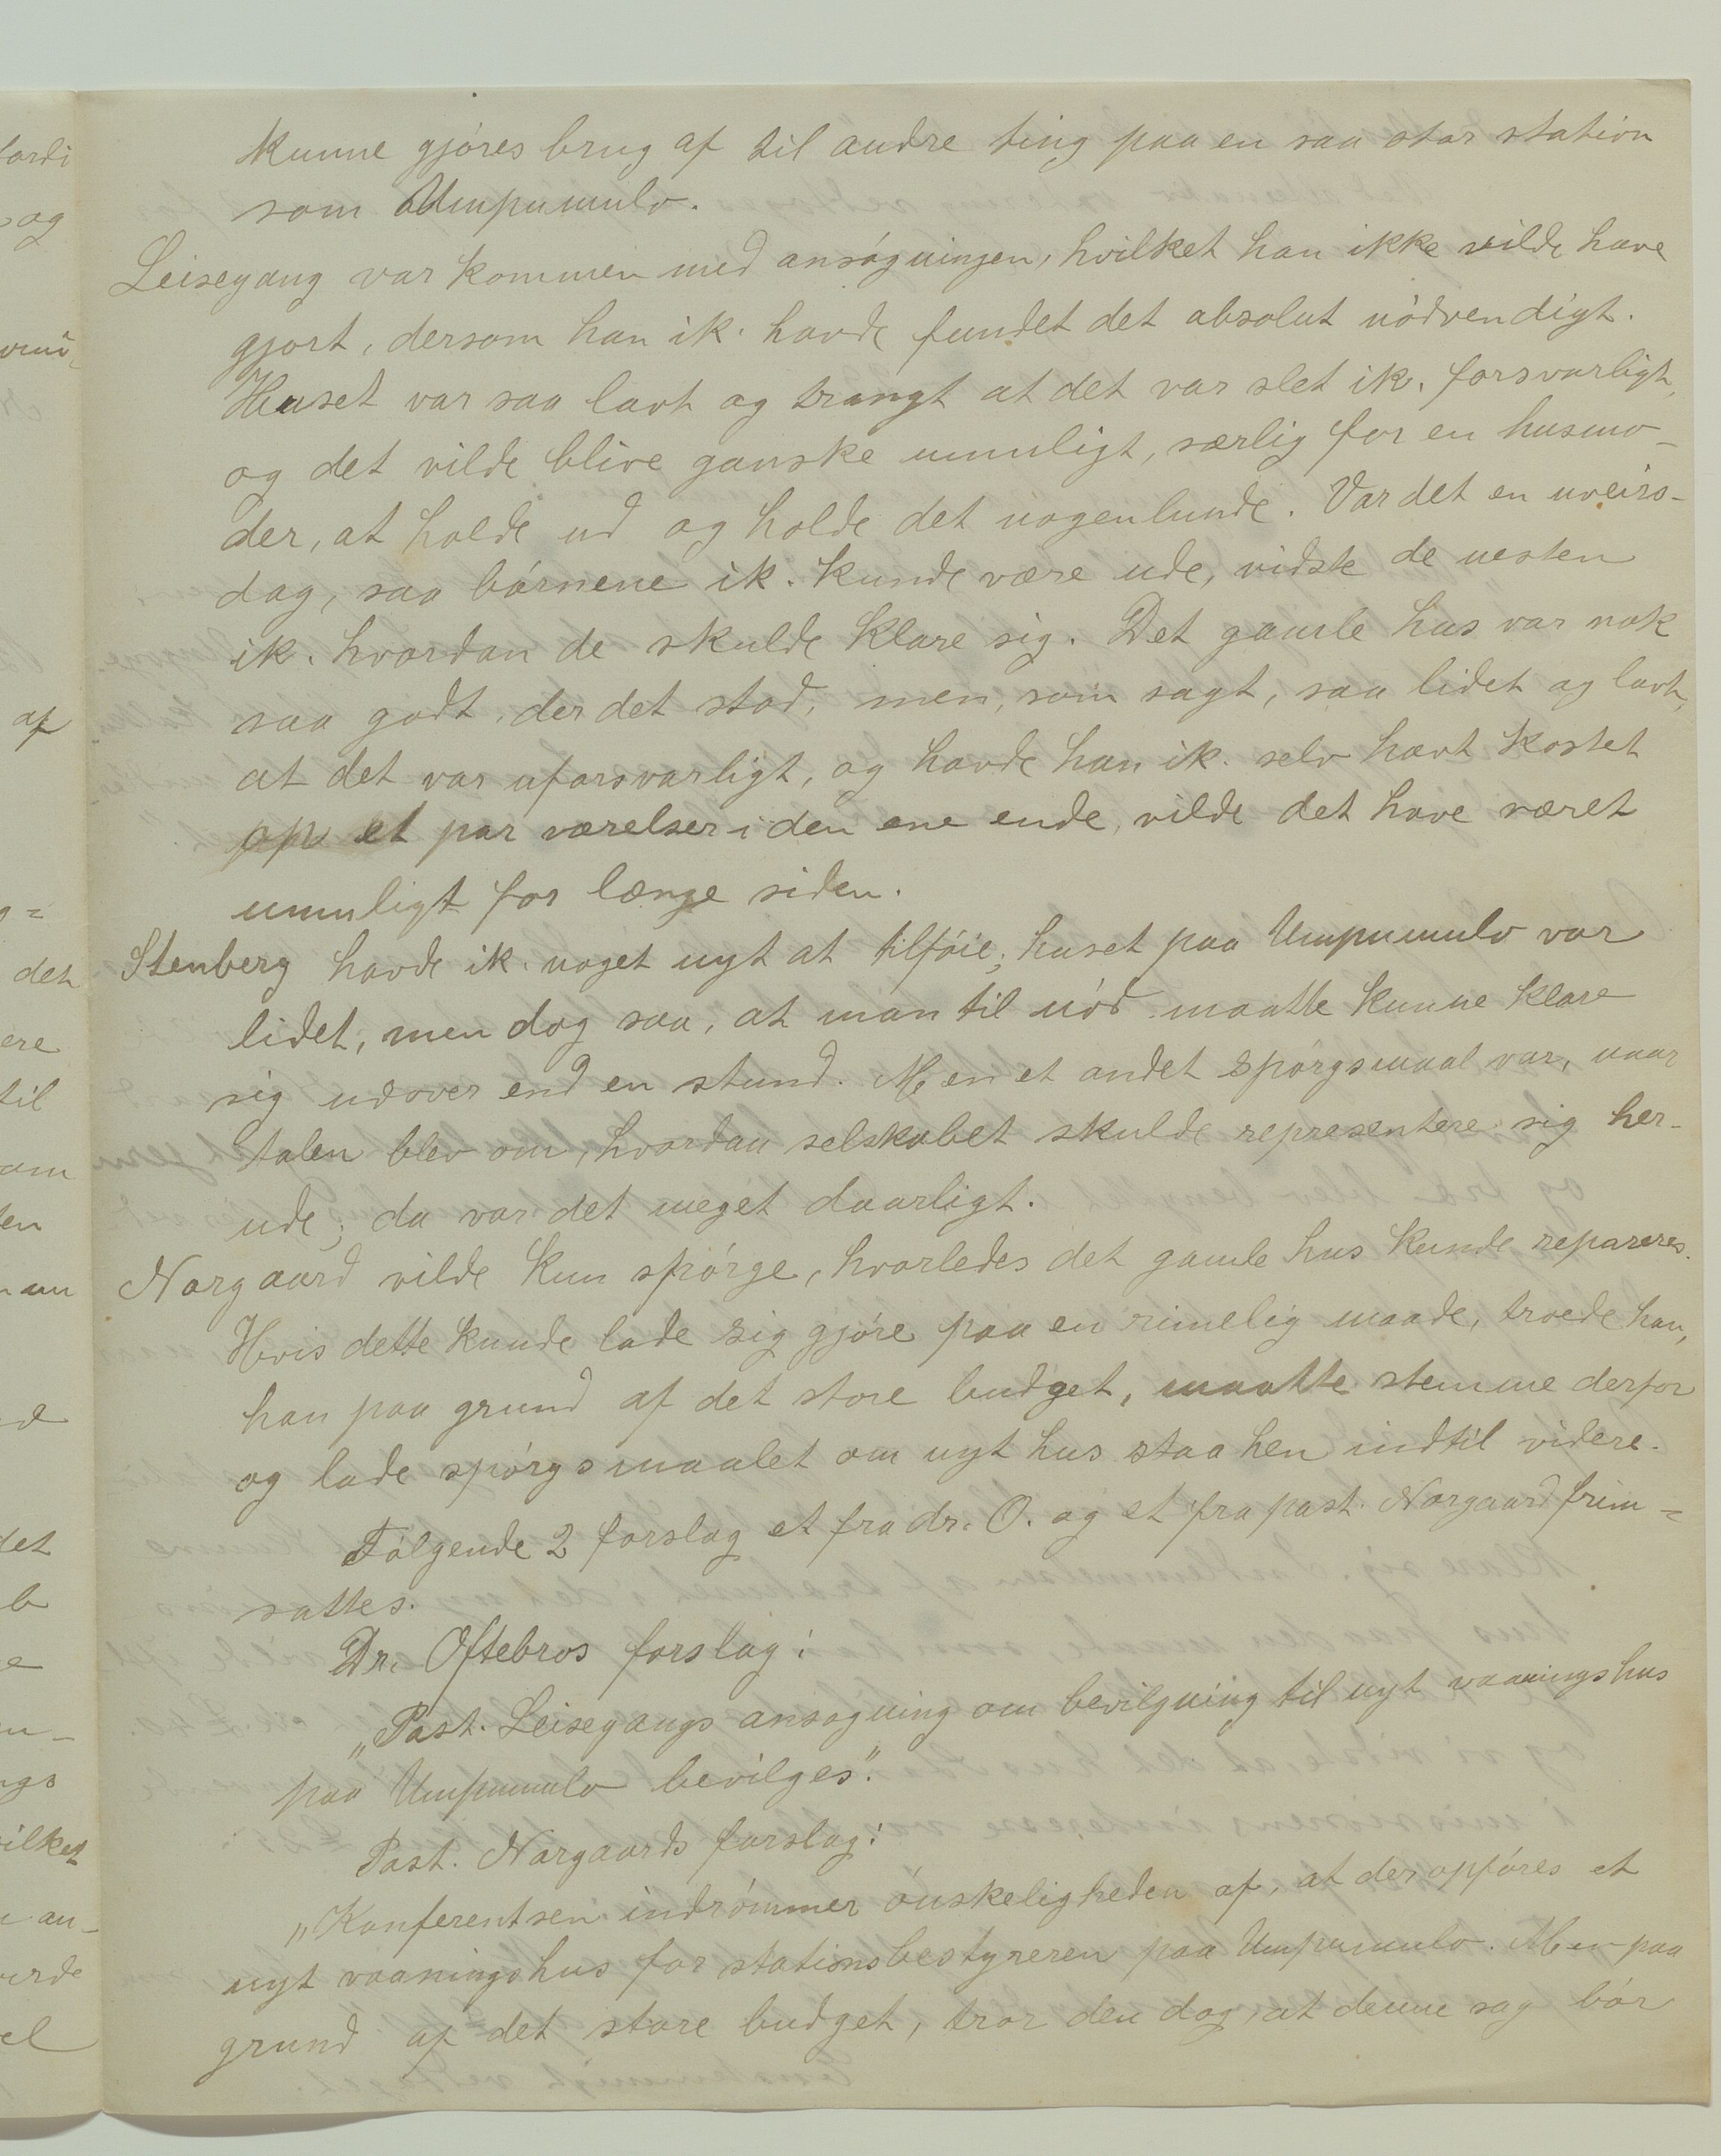 kunne gjóres brug af til andre ting paa en saa stor station
som Umpumulo.
Leisegang var kommen med ansógningen, hvilket han ikke vilde have
gjort, dersom han ik. havde fundet det absolut nódvendigt.
Huset var saa lavt og trangt at det var slet ik. forsvarligt,
og det vilde blive ganske umuligt, særlig for en husmo-
der, at holde ud og holde det nogenlunde. Var det en uveirs-
dag, saa bórnene ik. kunde være ude, vidste de nesten
ik. hvordan de skulde klare sig. Det gamle hus var nok
saa godt, der det stod, men, som sagt, saa lidet og lavt,
at det var uforsvarligt, og havde han ik. selv havt kostet
op et par værelser i den ene ende, vilde det have været
umuligt for længe siden.
Stenberg havde ik. noget nyt at tilfóie; huset paa Umpumulo var
lidet, men dog saa, at man til nód maatte kunne klare
sig udover end en stund. Men et andet spórgsmaal var, naar
talen blev om, hvordan selskabet skulde representere sig her-
ude; da var det meget daarligt.
Norgaard vilde kun spórge, hvorledes det gamle hus kunde repareres.
Hvis dette kunde lade sig gjóre paa en rimelig maade, troede han,
han paa grund af det store budget, maatte stemme derfor
og lade spórgsmaalet om nyt hus staa hen indtil videre.
Fólgende 2 forslag et fra dr. O. og et fra past. Norgaard frem=
sattes.
Dr. Oftebros forslag:
„Past. Leisegangs ansogning om bevilgning til nyt vaaningshus
paa Umpumulo bevilges".
Past. Norgaards forslag:
„Konferentsen indrómmer ónskeligheden af, at der opfóres et
nyt vaaningshus for stationsbestyreren paa Umpumulo. Men paa
grund af det store budget, tror den dog, at denne sag bór